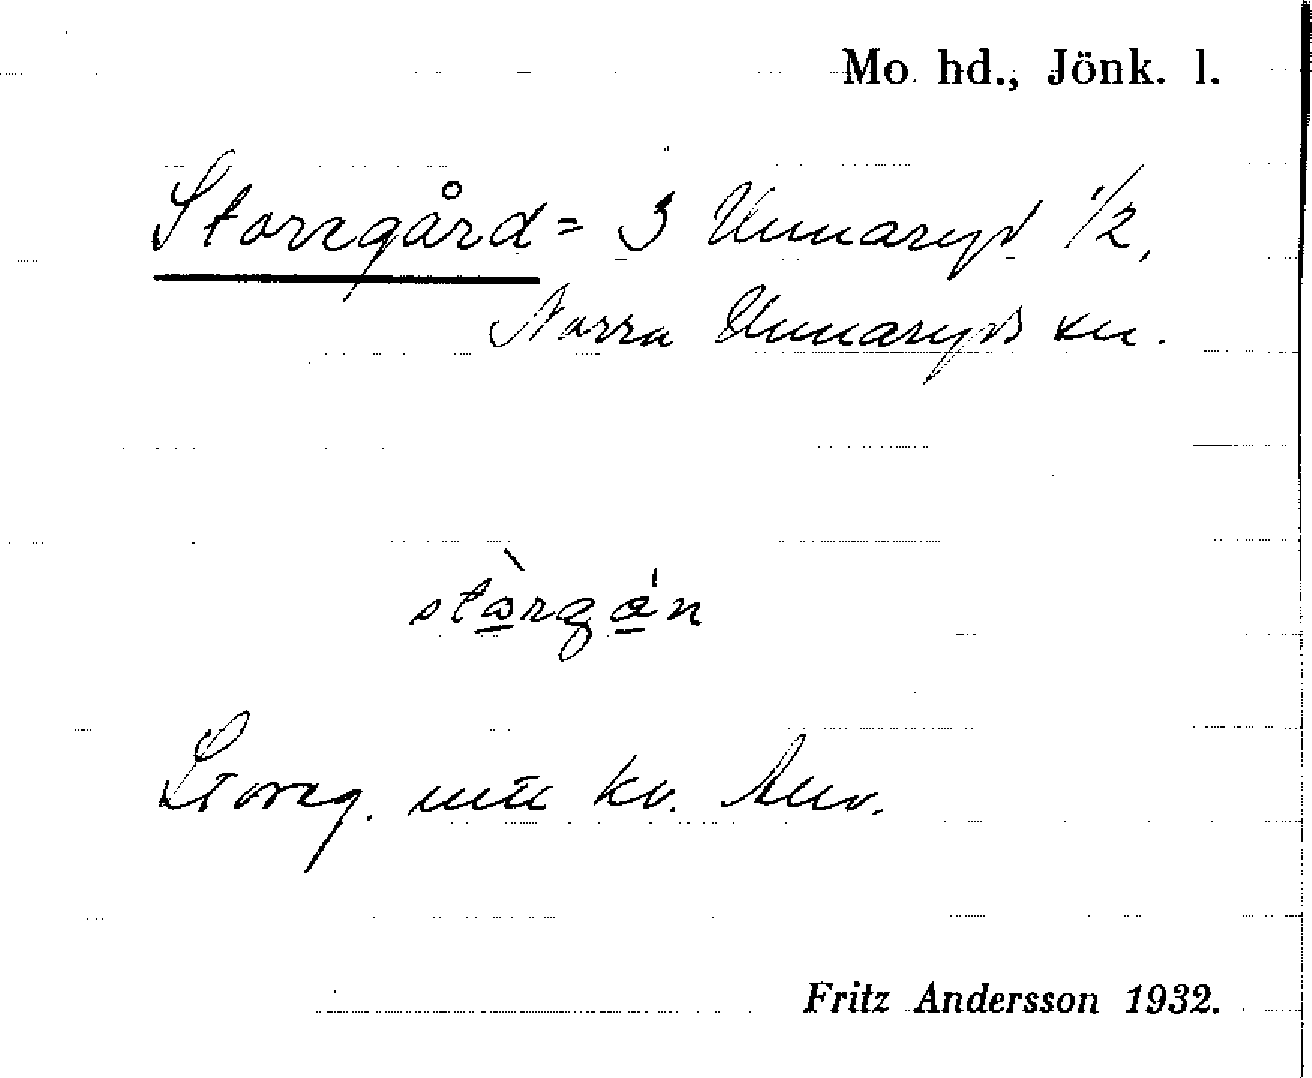 Mo hd., Jönk. l.
Storegård = 3 Unnaryd 1/2,
Norra Unnaryds sn.
Storeg. kv.
Fritz Andersson 1932.